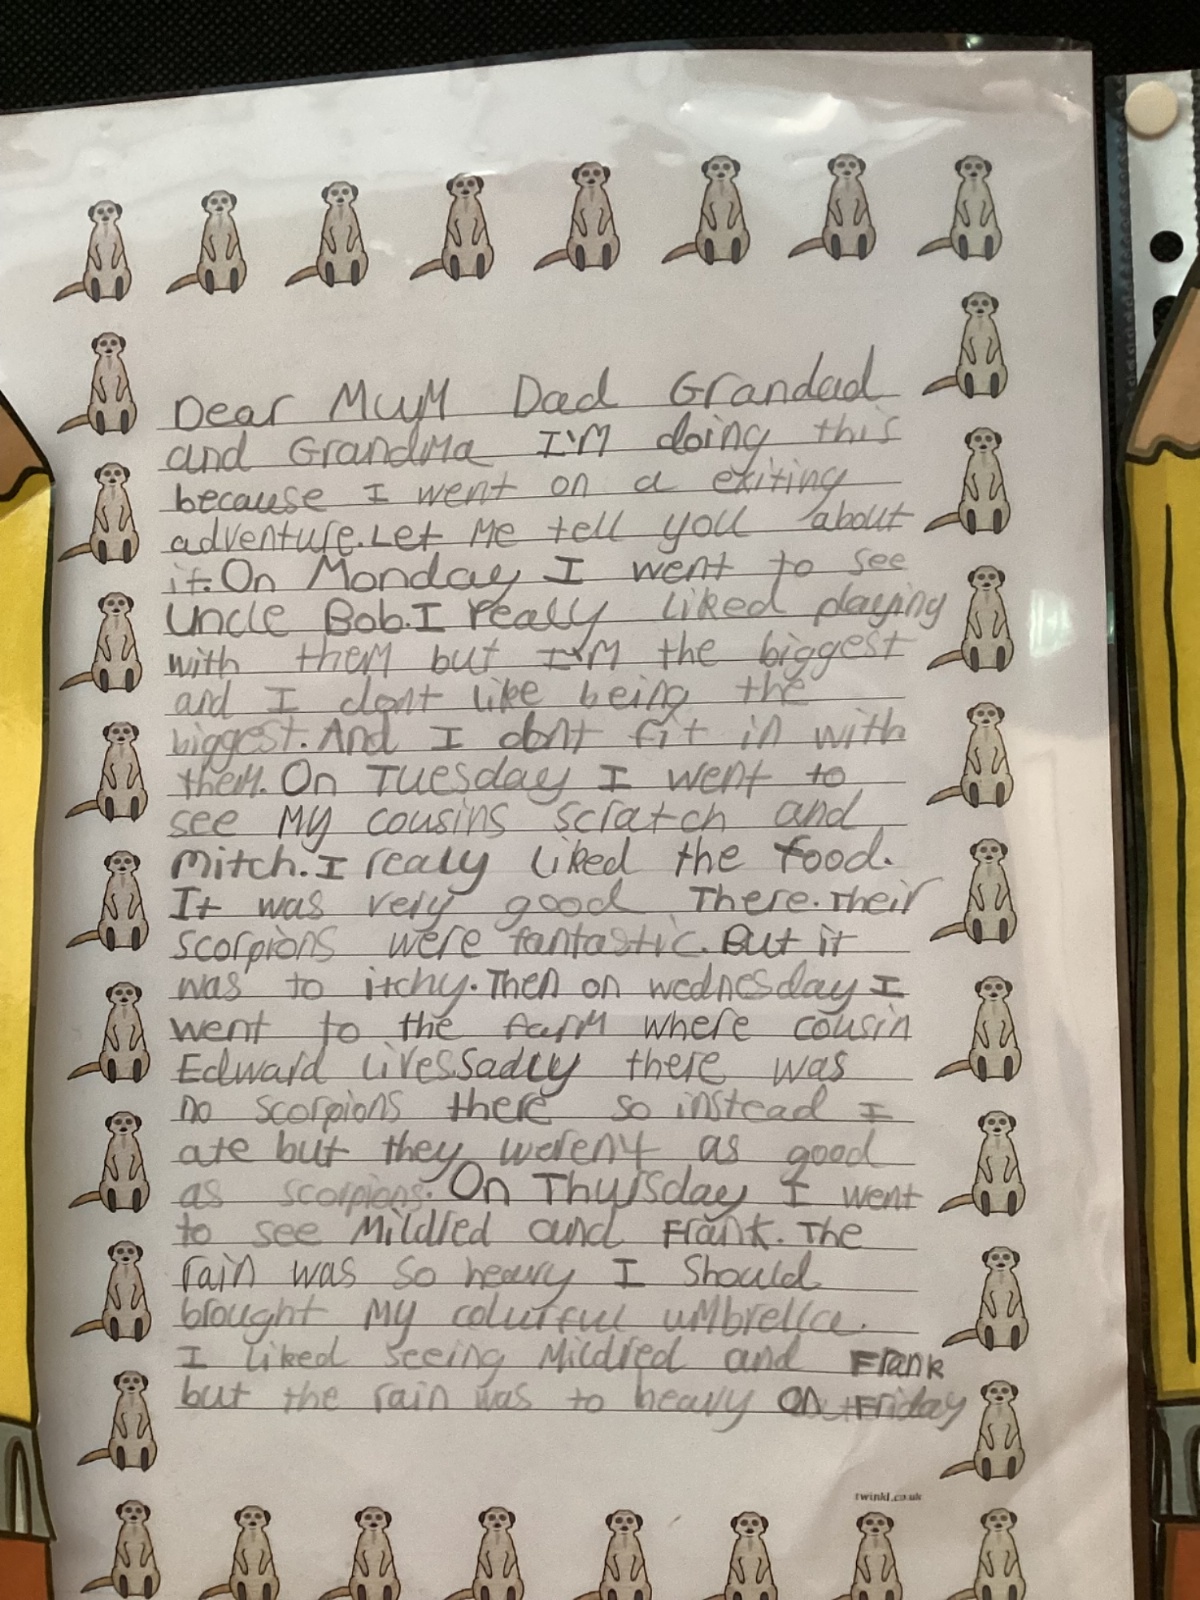 Dear MuM Dad Grandad
and GrandMa I'M doing this
because I went on a exiting
adventure.Let Me tell you about
it.On Monday I went to see
Uncle Bob.I realy liked playing
with theM but I'M the biggest
and I dont like being the
biggest.And I dont fit in with
theM.On Tuesday I went to
see My cousins scratch and
Mitch.I realy liked the food.
It was very good There.Their
scorpions were fantastic.But it
was to itchy.Then on wednesday I
went to the farM where cousin
Edward lives.sadly there was
no scorpions there so instead I
ate but they weren't as good
as scorpions.On Thursday I went
to see Mildred and Frank.The
rain was so heavy I Should
brought My colurful uMbrella.
I liked seeing Mildred and Frank
but the rain was to heavy On Friday
twinkl.co.uk